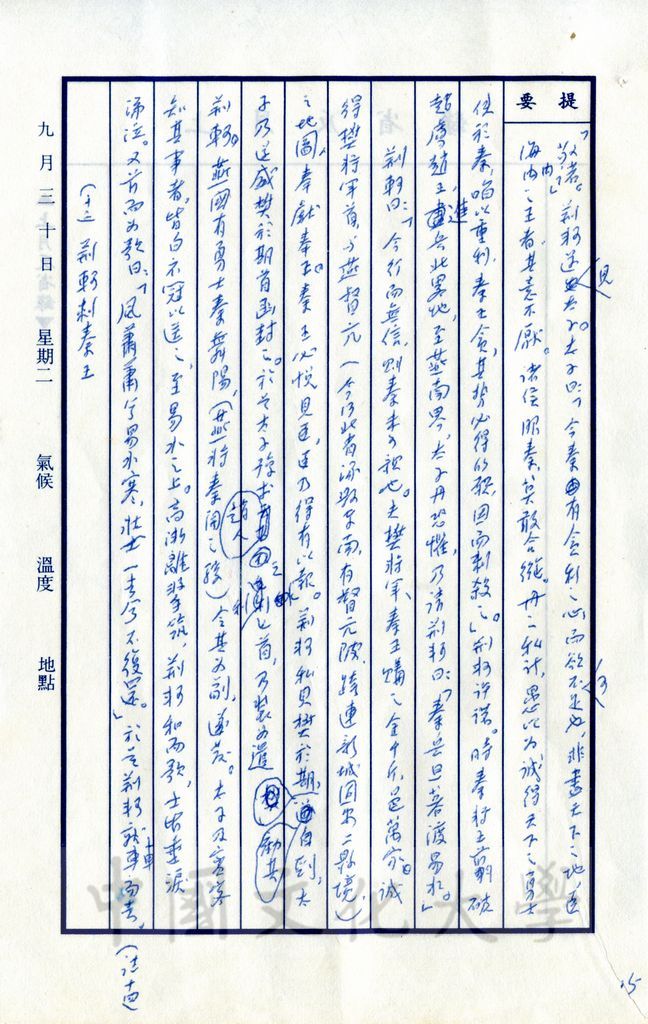 提要
敬諾。荆軻遂見太子。太子曰：「今秦有貪利之心，而欲不可足也，非盡天下之地，臣
海內之王者，其意不厭。諸侯服秦，莫敢合縱。丹之私計，愚以為誠得天下之勇士
使於秦，啗以重利，秦王貪，其勢必得所願，因而刺殺之。」荆軻許諾。時秦將王翦破
趙，虜趙王，進兵北畧地，至燕南界，太子丹恐懼，乃請荆軻曰：「秦兵旦暮渡易水。」
荆軻曰：「今行而無信，則秦未可親也。夫樊將軍，秦王購之金千斤，邑萬家。誠
得樊將軍首，与燕督亢（今河北省涿縣東南，有督亢陂，跨連新城固安二縣境，）
之地圖，奉獻秦王。秦王必悅見臣，臣乃得有以報。荆軻私見樊於期，自刎，太
子乃遂盛樊於期首函封之。於是太子豫求趙人之利匕首，乃裝為遣
荆軻。燕國有勇士秦舞陽，（燕將秦開之孫）令其為副，遂發。太子及賓客
知其事者，皆白衣冠以送之，至易水之上。高漸離擊筑，荆軻和而歌，士皆垂淚
涕泣。又前而為歌曰：「風蕭蕭兮易水寒，壯士一去兮不復還。」於是荆軻就車而去。（註十四）
（十三）荆軻刺秦王
九月三十日 星期二 氣候 溫度 地點
15
中國文化大學